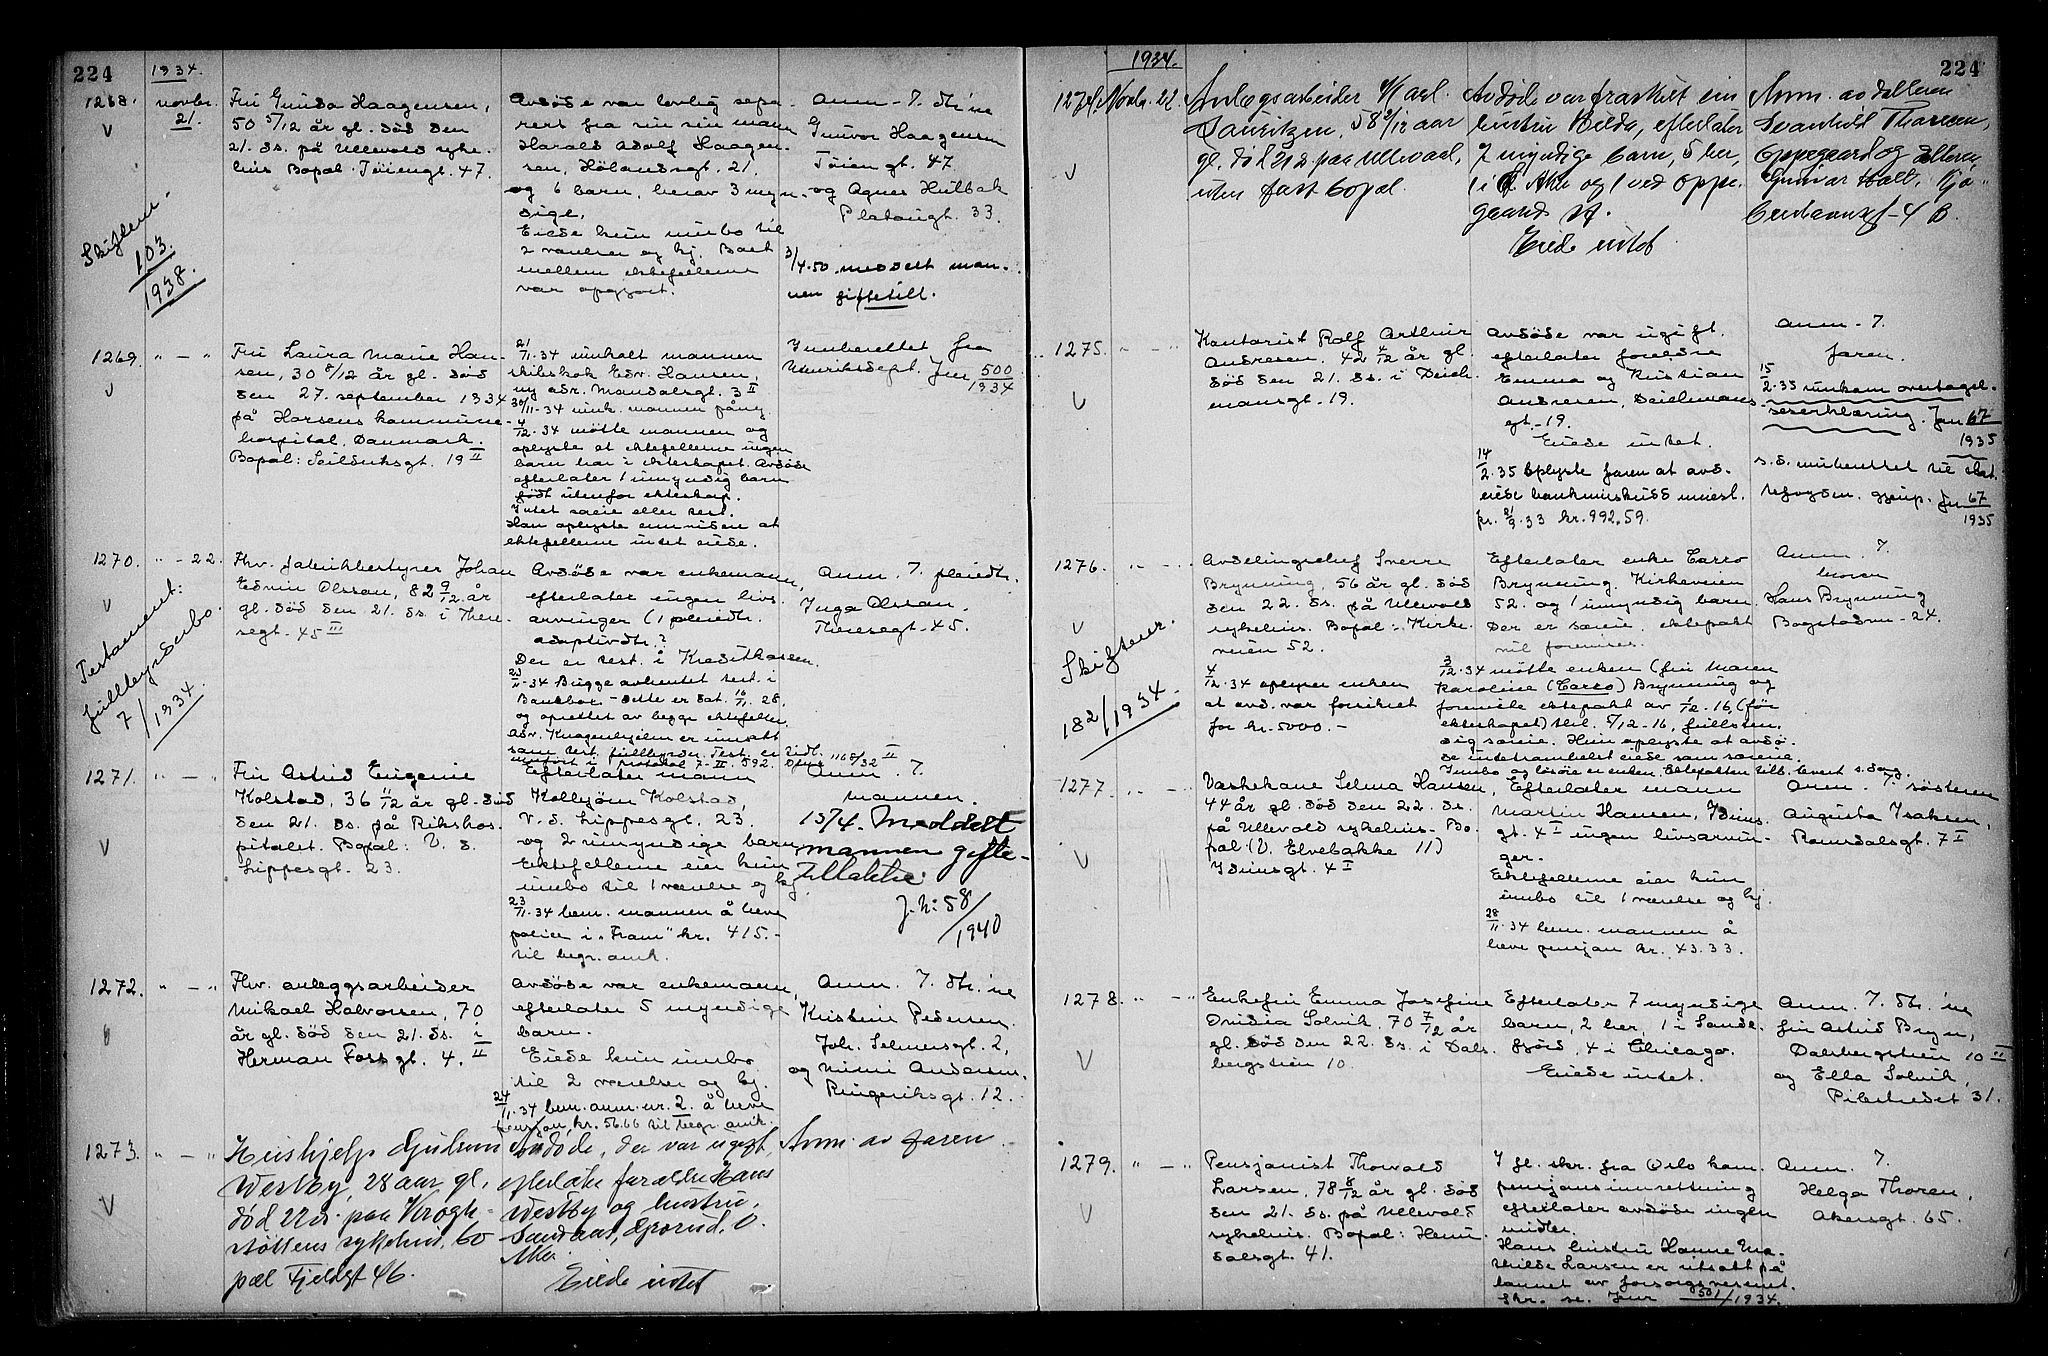 224
1934.
1268.
novbr.
21.
Fru Gunda Haagensen,
50 5/12 år gl. død den
21. ds. på Ullevold syke-
hus Bopæl. Tøiengt. 47.
Skifteni
103.
1938.
Avdøde var lovlig sepa-
rert fra sin mann
Harald Adolf Haagen-
sen, Hølandsgt. 21.
og 6 barn, herav 3 myn-
dige.
Eiede kun innbo til
2 værelser og kj. Boet
mellem ektefellene
var opgjort.
Anm. 7. dtr'ne
Gunvor Haagensen
Tøiengt. 47.
og Agnes Hulbak
Platougt. 33.
3/4.50 meddelt man-
nen giftetill.
1269.
" — "
Fru Laura Marie Han-
sen, 30 8/12 år gl. død
den 27. september 1934
på Horsens kommune-
hospital, Danmark.
Bopæl: Seilduksgt. 19 II
21/11-34 innkalt mannen
skibskok Edv. Hansen,
ny adr. Mandalsgt. 3 II
30/11-34 innk. mannen påny.
4/12.34 møtte mannen og
oplyste at ektefellene ingen
barn har i ekteskapet. Avdøde
efterlater 1 umyndig barn
født utenfor ekteskap.
Intet særeie eller test.
Han oplyste ennvidere at
ektefellene intet eiede.
Innberettet fra
Utenriksdept. Jnr 500/1934
1270.
" - 22.
Fhv. fabrikkbestyrer Johan
Edvin Olsson, 82 9/12 år
gl. død den 21. ds. i There-
segt. 45 III
Testament:
fullbyrderbo.
7/1934.
Avdøde var enkemann,
efterlater ingen livs-
arvinger (1 pleiedtr.
adoptivdtr.?
Der er test. i Kreditkassen.
23/11-34 Bugge avhentet test. i
Bankbox - dette er dat. 16/11.28,
og oprettet av begge ektefeller.
som test. fullbyrder.
Anm. 7. pleiedtr.
Inga Olsson.
Theresegt. 45.
1271.
" — "
Fru Astrid Eugenie
Kolstad, 36 11/12 år gl. død
den 21. ds. på Rikshos-
pitalet. Bopæl: V. d.
Lippesgt. 23.
Efterlater mann
Kolbjörn Kolstad,
V. d. Lippesgt. 23.
og 2 umyndige barn
Ektefellene eier kun
innbo til 1 værelse og kj.
23/11-34 bem. mannen å heve
police i "Fram" kr. 415.-
til begr. omk.
Anm. 7.
mannen.
13/4. Meddelt
mannen gifte-
tillatelse
J. N: 58/1940
1272.
" — "
Fhv. anleggsarbeider
Mikael Halvorsen, 70
år gl. død den 21. ds. i
Herman Fossgt. 4. II
Avdøde var enkemann,
efterlater 5 myndige
barn.
Eiede kun innbo
til 2 værelser og kj.
24/11-34 bem. anm. nr. 2. å heve
pensjon kr. 56.66 til begr. omk.
Anm. 7. dtr.'ne
Kristine Pedersen.
Joh. Selmersgt. 2,
og Mimi Andersen,
Ringeriksgt. 12.
1273.
" — "
Hushjelp Gudrun
Westby, 28 aar gl,
død 22 ds. paa Krogh-
støttens sykehus, bo-
pæl Fjeldgt 46.
Avdøde, der var ugift,
efterlater forældre Hans
Westby og hustru,
Aker.
Eiede intet
Anm. av faren.
224
1934.
1274.
Novbr. 22.
Anlægsarbeider Karl
Lauritzen, 58 2/12 aar
gl. død 21 ds paa Ullevaal,
uten fast bopæl.
Avdøde var fraskilt sin
hustru Hilda, efterlater
7 myndige barn, 5 her,
1 i Ø. Aker og 1 ved Oppe-
gaard st.
Eiede intet
Anm. av datteren
Svanhild Thoresen,
Oppegaard og datteren
Gunvor Holt, Kjø-
benhavnsgt. 4 B.
1275.
" — "
Kontorist Rolf Arthur
Andresen, 42 4/12 år gl.
død den 21. ds. i Deich-
mansgt. 19.
Avdøde var ugift.
efterlater foreldre
Emma og Kristian
Andresen, Deichmans-
gt. 19.
Eiede intet.
14/2.35 Oplyste faren at avd.
eiede bankinnskudd
pr. 21/9.33 kr. 992.59.
Anm. 7.
faren.
15/2.35 innkom overtagel-
seserklæring. Jnr 67/1935
s.d. innberettet til skat-
Jnr 67/1935
1276.
" — "
Avdelingschef Sverre
Brynning, 56 år gl. død
den 22. ds. på Ullevold
sykehus. Bopæl: Kirke-
veien 52.
4/12.34 oplyser enken
at avd. var forsikret
for kr. 5000.-
Skifteur.
182/1934.
Efterlater enke Carro
Brynning, Kirkeveien
52. og 1 umyndig barn.
Der er særeie, ektepakt
vil forevises.
3/12.34 møtte enken (fru Maren
Karoline (Carro) Brynning og
foreviste ektepakt av 1/12-16, (før
ekteskapet) tbl. 5/12-16, fullsten-
dig særeie. Hun oplyste at avdø-
de intetsomhelst eiede som særeie.
Innbo og løsøre er enkens.
Anm. 7.
broren
Hans Brynning
Bogstadvn. 24.
1277.
" — "
Vaskekone Selma Hansen,
44 år gl. død den 22. ds.
på Ullevold sykehus. Bo-
pæl (V. Elvebakke 11)
Idunsgt. 4 I
Efterlater mann
Martin Hansen, Iduns-
gt. 4 I ingen livsarvin-
ger.
Ektefellene eier kun
innbo til 1 værelse og kj.
28/11.34 bem. mannen å
heve pensjon kr. 43.33.
Anm. 7. søsteren
Augusta Isaksen,
Romsdalsgt. 7 I
1278.
" — "
Enkefru Emma Josefine
Ovidia Solvik, 70 7/12 år
gl. død den 22. ds. i Dals-
bergstien 10.
Efterlater 7 myndige
barn, 2 her, 1 i Sande-
fjord, 4 i Chicago.
Eiede intet.
Anm. 7. dtr.'ne
fru Astrid Bryn,
Dalsbergstien 10 II
og Ella Solvik,
Pilestredet 31.
1279.
" — "
Pensjonist Thorvald
Larsen, 78 8/12 år gl. død
den 21. ds. på Ullevold
sykehus. Bopæl: Heim-
dalsgt. 41.
I fl. skr. fra Oslo kom.
pensjonsinnretning
efterlater avdøde ingen
midler.
Hans hustru Hanne Ma-
thilde Larsen er utsatt på
landet av forsorgsvesenet.
Skr. se. Jnr 501/1934.
Anm. 7.
Helga Thoren,
Akersgt. 65.